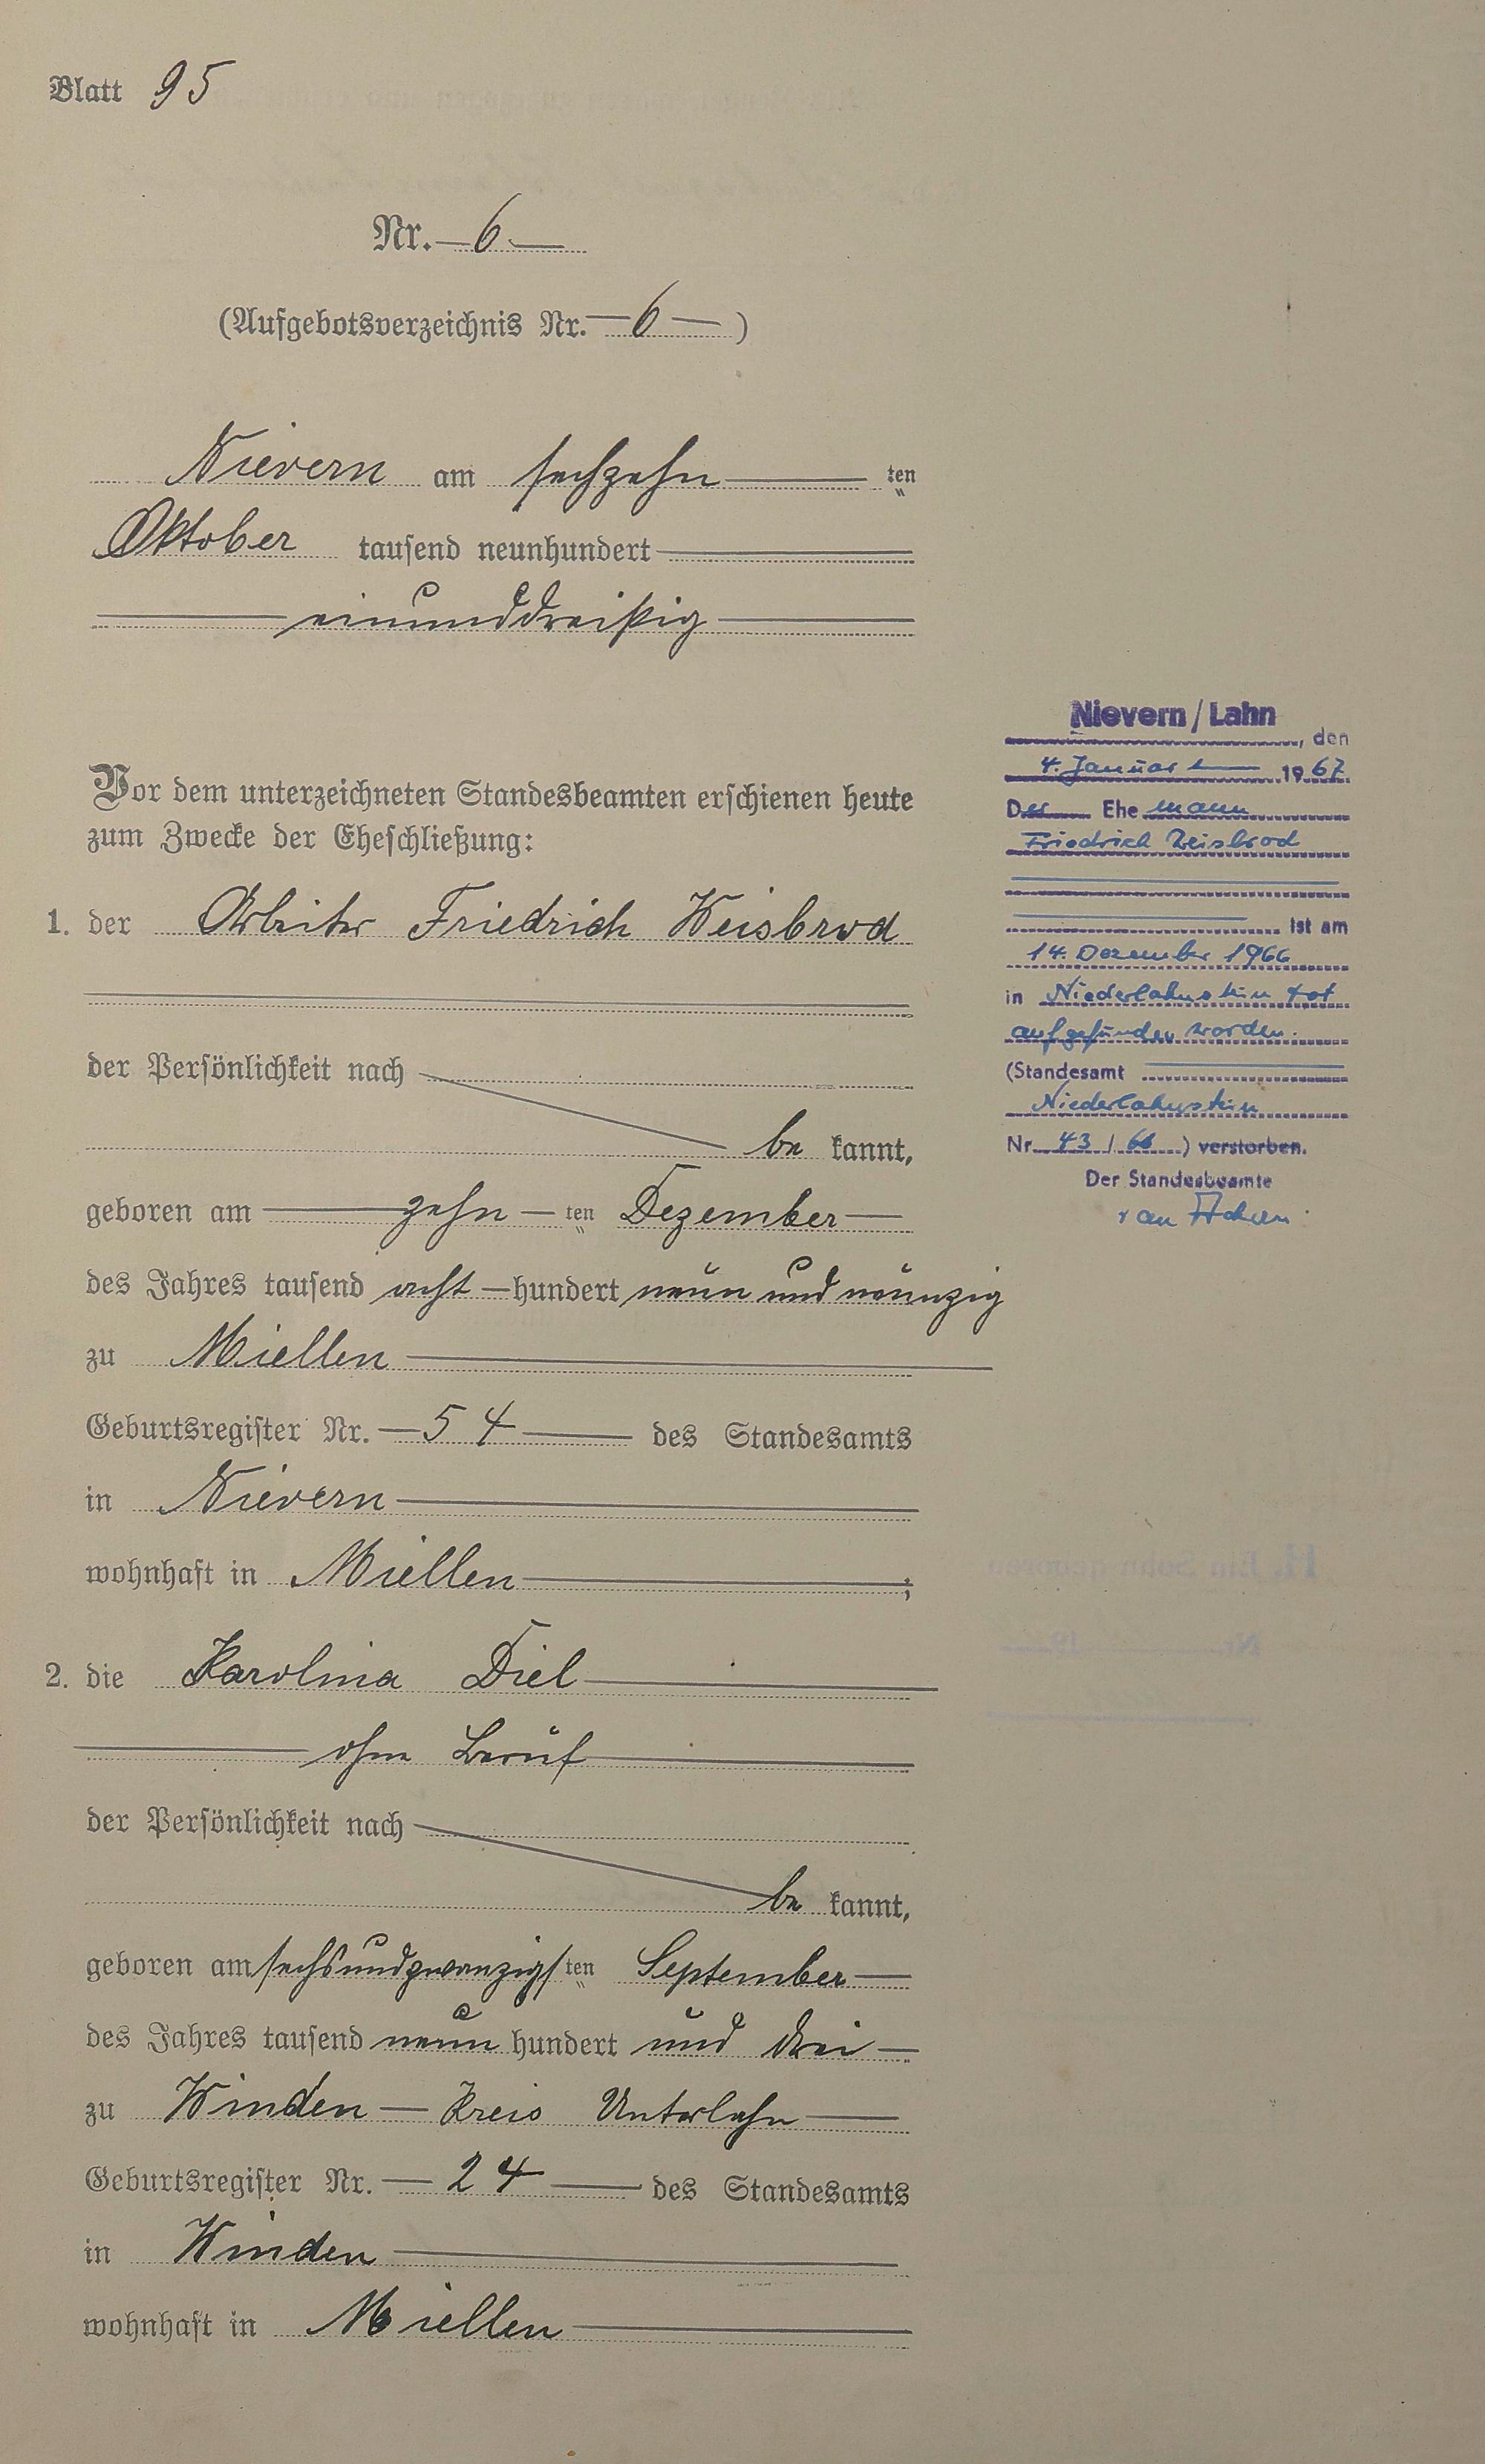 Blatt 95
Nr. 6
(Aufgebotsverzeichnis Nr. 6)
Nievern am sechzehn ten
Oktober tausend neunhundert
einunddreißig
Vor dem unterzeichneten Standesbeamten erschienen heute
zum Zwecke der Eheschließung:
1. der Arbeiter Friedrich Weisbrod
der Persönlichkeit nach
be kannt,
geboren am zehn ten Dezember
des Jahres tausend acht hundert neun und neunzig
zu Miellen
Geburtsregister Nr. 54 des Standesamts
in Nievern
wohnhaft in Miellen;
2. die Karolina Diel
ohne Beruf
der Persönlichkeit nach
be kannt,
geboren am sechsundzwanzigsten September
des Jahres tausend neun hundert und drei
zu Winden Kreis Unterlahn
Geburtsregister Nr. 24 des Standesamts
in Winden
wohnhaft in Miellen
Nievern/Lahn
, den
4. Januar 1967
Der Ehe mann
Friedrich Weisbrod
ist am
14. Dezember 1966
in Niederlahnstein tot
aufgefunden worden.
(Standesamt
Niederlahnstein
Nr. 43/66) verstorben.
Der Standesbeamte